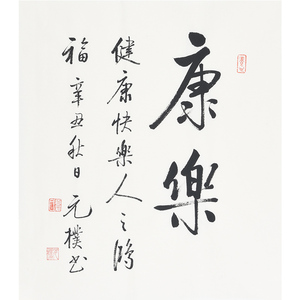 康樂
健康快樂人之鴻
福 辛丑秋日 元樸书